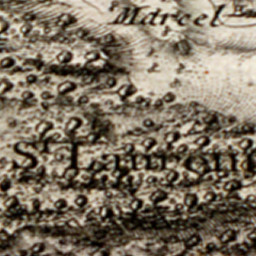 Marcel
St. Lauren